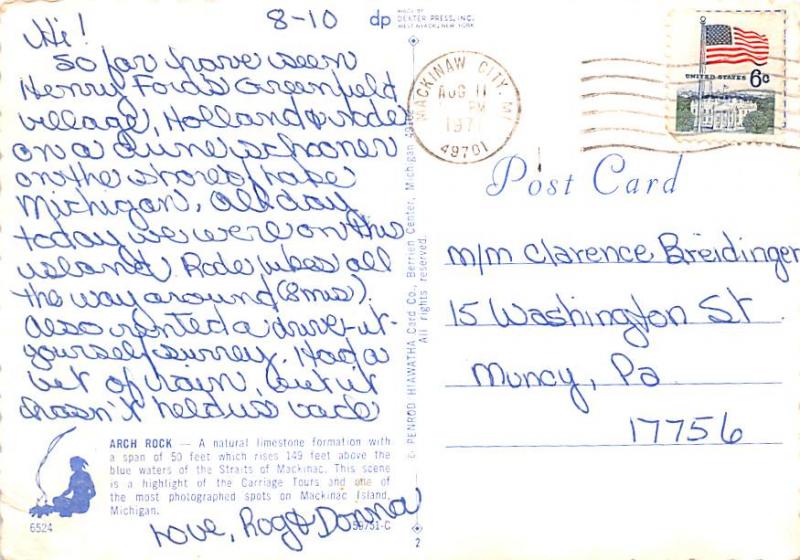 8-10
dp
MADE BY
DEXTER PRESS, INC.
WEST NYACK, NEW YORK
Hi!
So far have seen
Henry Ford's Greenfield
Village, Holland & rode
on a dune schooner
on the shore of Lake
Michigan. All day
today we were on this
island. Rode bikes all
the way around (8 mis).
Also rented a drive-it-
yourself surrey. Had a
bit of rain, but it
hasn't held us back
ARCH ROCK — A natural limestone formation with
a span of 50 feet which rises 149 feet above the
blue waters of the Straits of Mackinac. This scene
is a highlight of the Carriage Tours and one of
the most photographed spots on Mackinac Island,
Michigan.
6524
59751-C
Love, Rog & Donna
© PENROD HIAWATHA Card Co., Berrien Center, Michigan
All rights reserved.
2
MACKINAW CITY, MI
AUG 11
PM
1971
49701
UNITED STATES 6c
Post Card
m/m Clarence Breidinger
15 Washington St
Muncy, Pa
17756